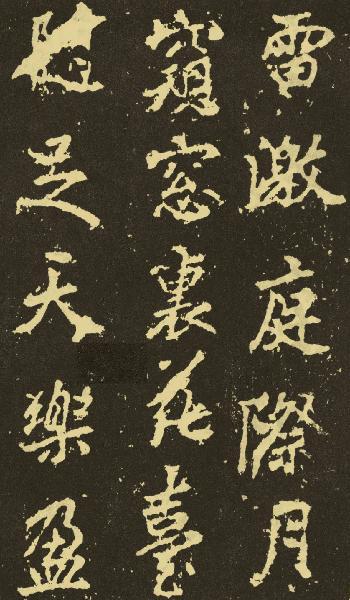 雷激庭際月
窺窓裏花臺
足天樂盈